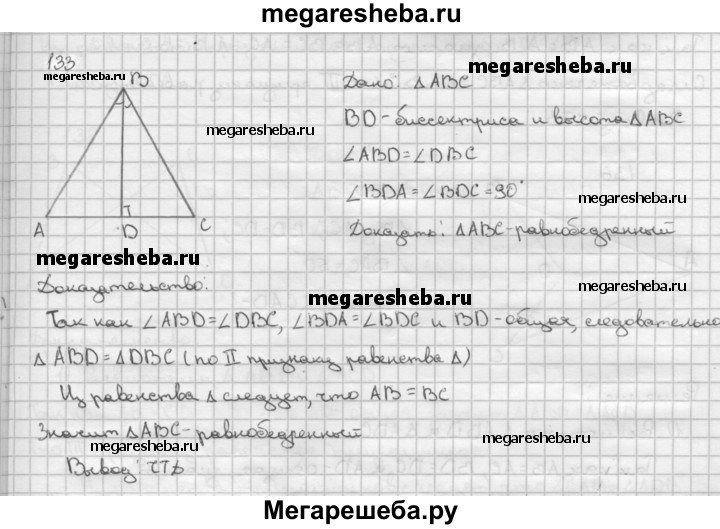 megaresheba.ru
133
megaresheba.ru
B
A
D
C
megaresheba.ru
megaresheba.ru
Дано: △ ABC
BD - биссектриса и высота △ ABC
∠ ABD = ∠ DBC
∠ BDA = ∠ BDC = 90°
megaresheba.ru
Доказать: △ ABC - равнобедренный
megaresheba.ru
Доказательство:
megaresheba.ru
Так как ∠ ABD = ∠ DBC, ∠ BDA = ∠ BDC и BD - общая, следовательно
△ ABD = △ DBC (по II признаку равенства △)
Из равенства △ следует, что AB = BC
Значит △ ABC - равнобедренный
megaresheba.ru
megaresheba.ru
Вывод: ЧТД
Мегарешеба.ру